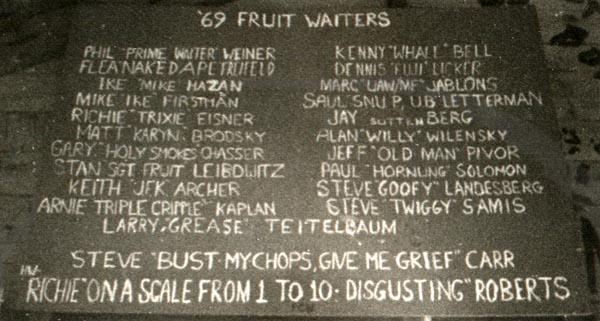 '69 FRUIT WAITERS
PHIL "PRIME WAITER" WEINER
FLEA NAKED APE
IKE "MIKE" HAZAN
MIKE IKE FIRSTMAN
RICHIE "TRIXIE" EISNER
MATT "KARYN" BRODSKY
GARY "HOLY SMOKES" CHASSER
STAN SGT FRUIT LEIBOWITZ
KEITH "JFK" ARCHER
ARNIE TRIPLE CRIPPLE" KAPLAN
LARRY "GREASE" TEITELBAUM
KENNY "WHALE" BELL
DENNIS "FUJI" LICKER
MARC "UAW/MF" JABLONS
SAUL SNU P, UB" LETTERMAN
JAY SUTTEN BERG
ALAN "WILLY" WILENSKY
JEFF "OLD MAN" PIVOR
PAUL "HORNUNG" SOLOMON
STEVE "GOOFY" LANDESBERG
STEVE "TWIGGY" SAMIS
STEVE "BUST MY CHOPS, GIVE ME GRIEF" CARR
"RICHIE "ON A SCALE FROM 1 TO 10 - DISGUSTING" ROBERTS